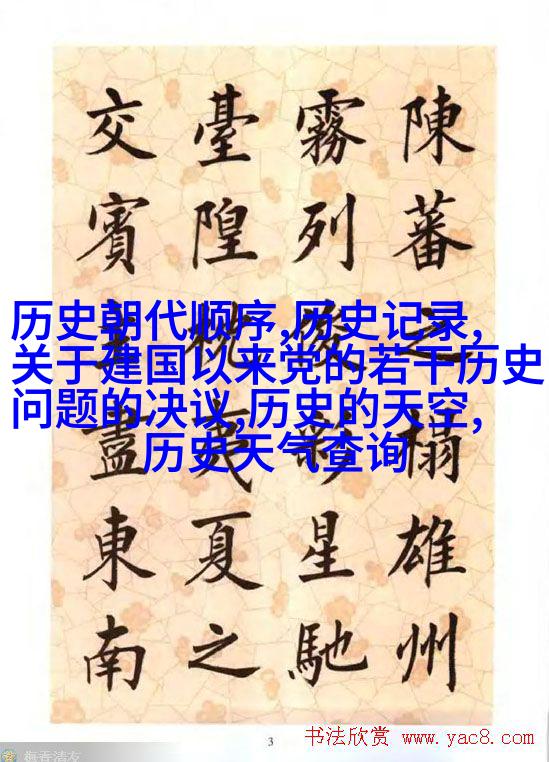 陳蕃之榻雄州
霧列俊彩星馳
臺隍枕夷夏之
交賓主盡東南
历史朝代顺序,历史记录,
关于建国以来党的若干历史
问题的决议,历史的天空,
历史天气查询
3
书法欣赏 www.yac8.com